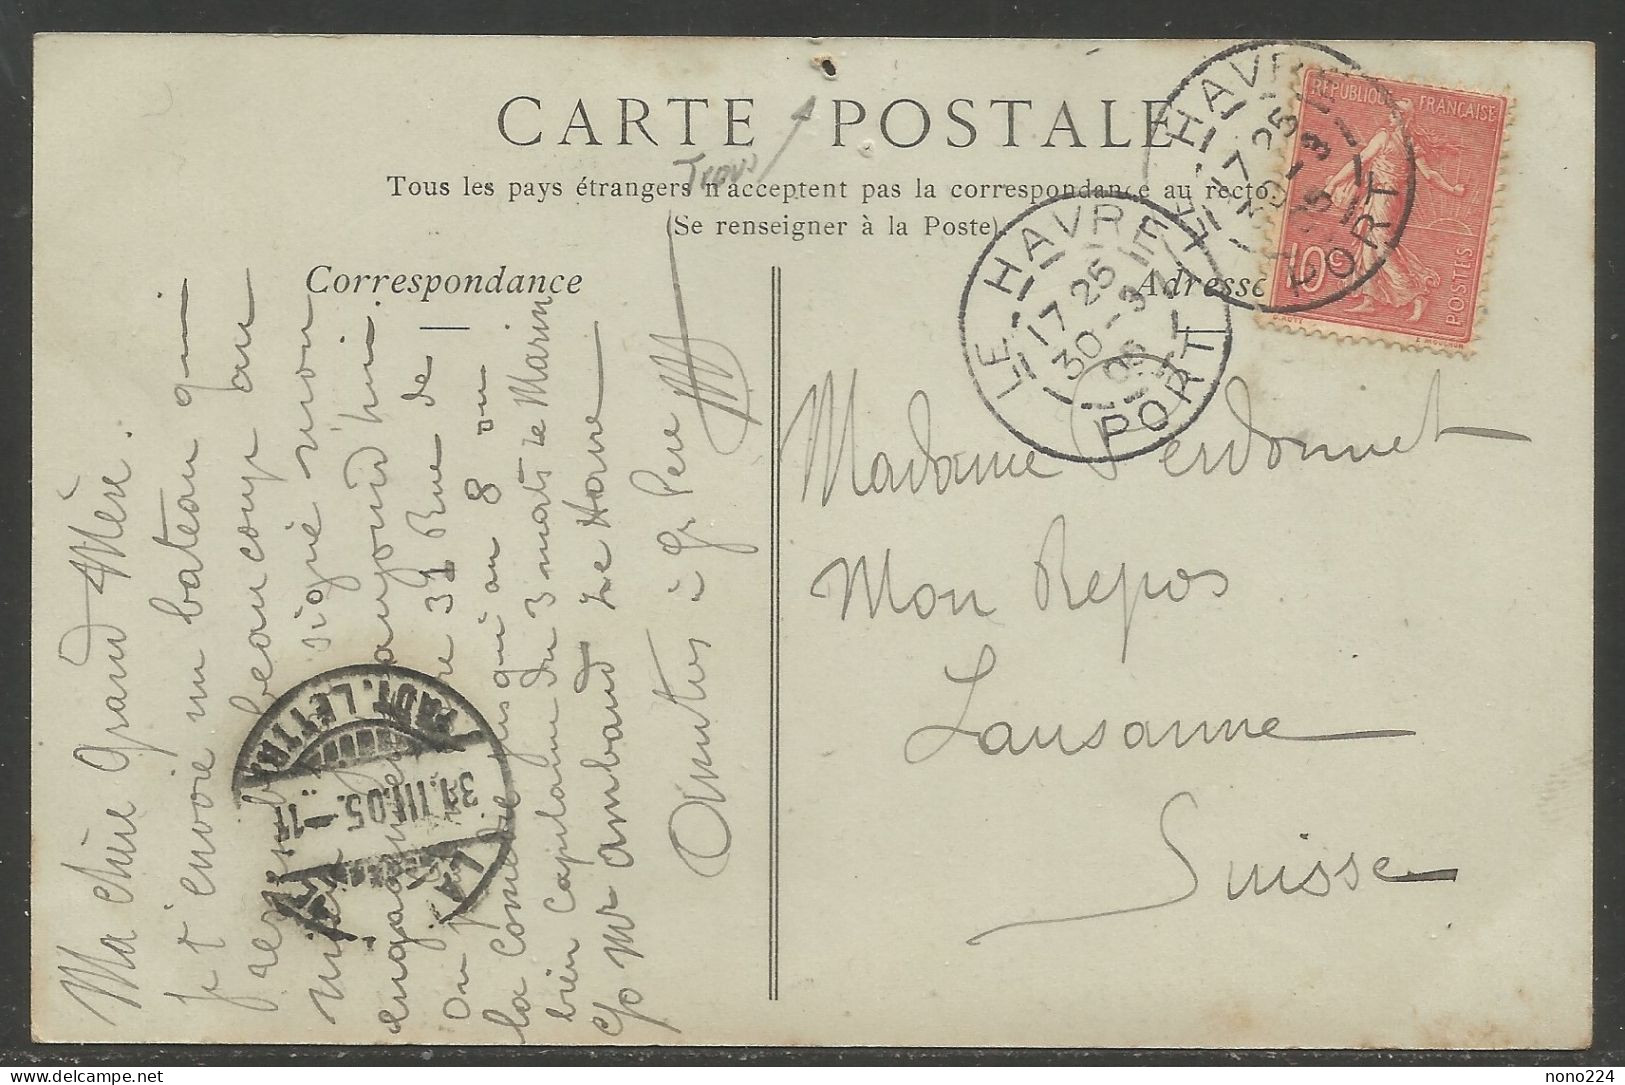 CARTE POSTALE
Trou
Tous les pays étrangers n'acceptent pas la correspondance au recto
(Se renseigner à la Poste)
Correspondance
Adresse
LE HAVRE
PORT
17 25
30-3
05
LE HAVRE
PORT
17 25
30-3
05
REPUBLIQUE FRANÇAISE
10c
POSTES
Ma chère Grand Mère.
Je t'envoie un bateau qui
ressemble beaucoup au
mien
signé mon
engagement aujourd'hui
31 Rue de
la Comédie
8 ou
bien Capitaine du 3 mats le Marin
c/o Mr Ambaud Le Havre
Amitiés à Gd Père
31.III.05.-11
LETTR.
Madame Perdonnet
Mon Repos
Lausanne
Suisse
nono224